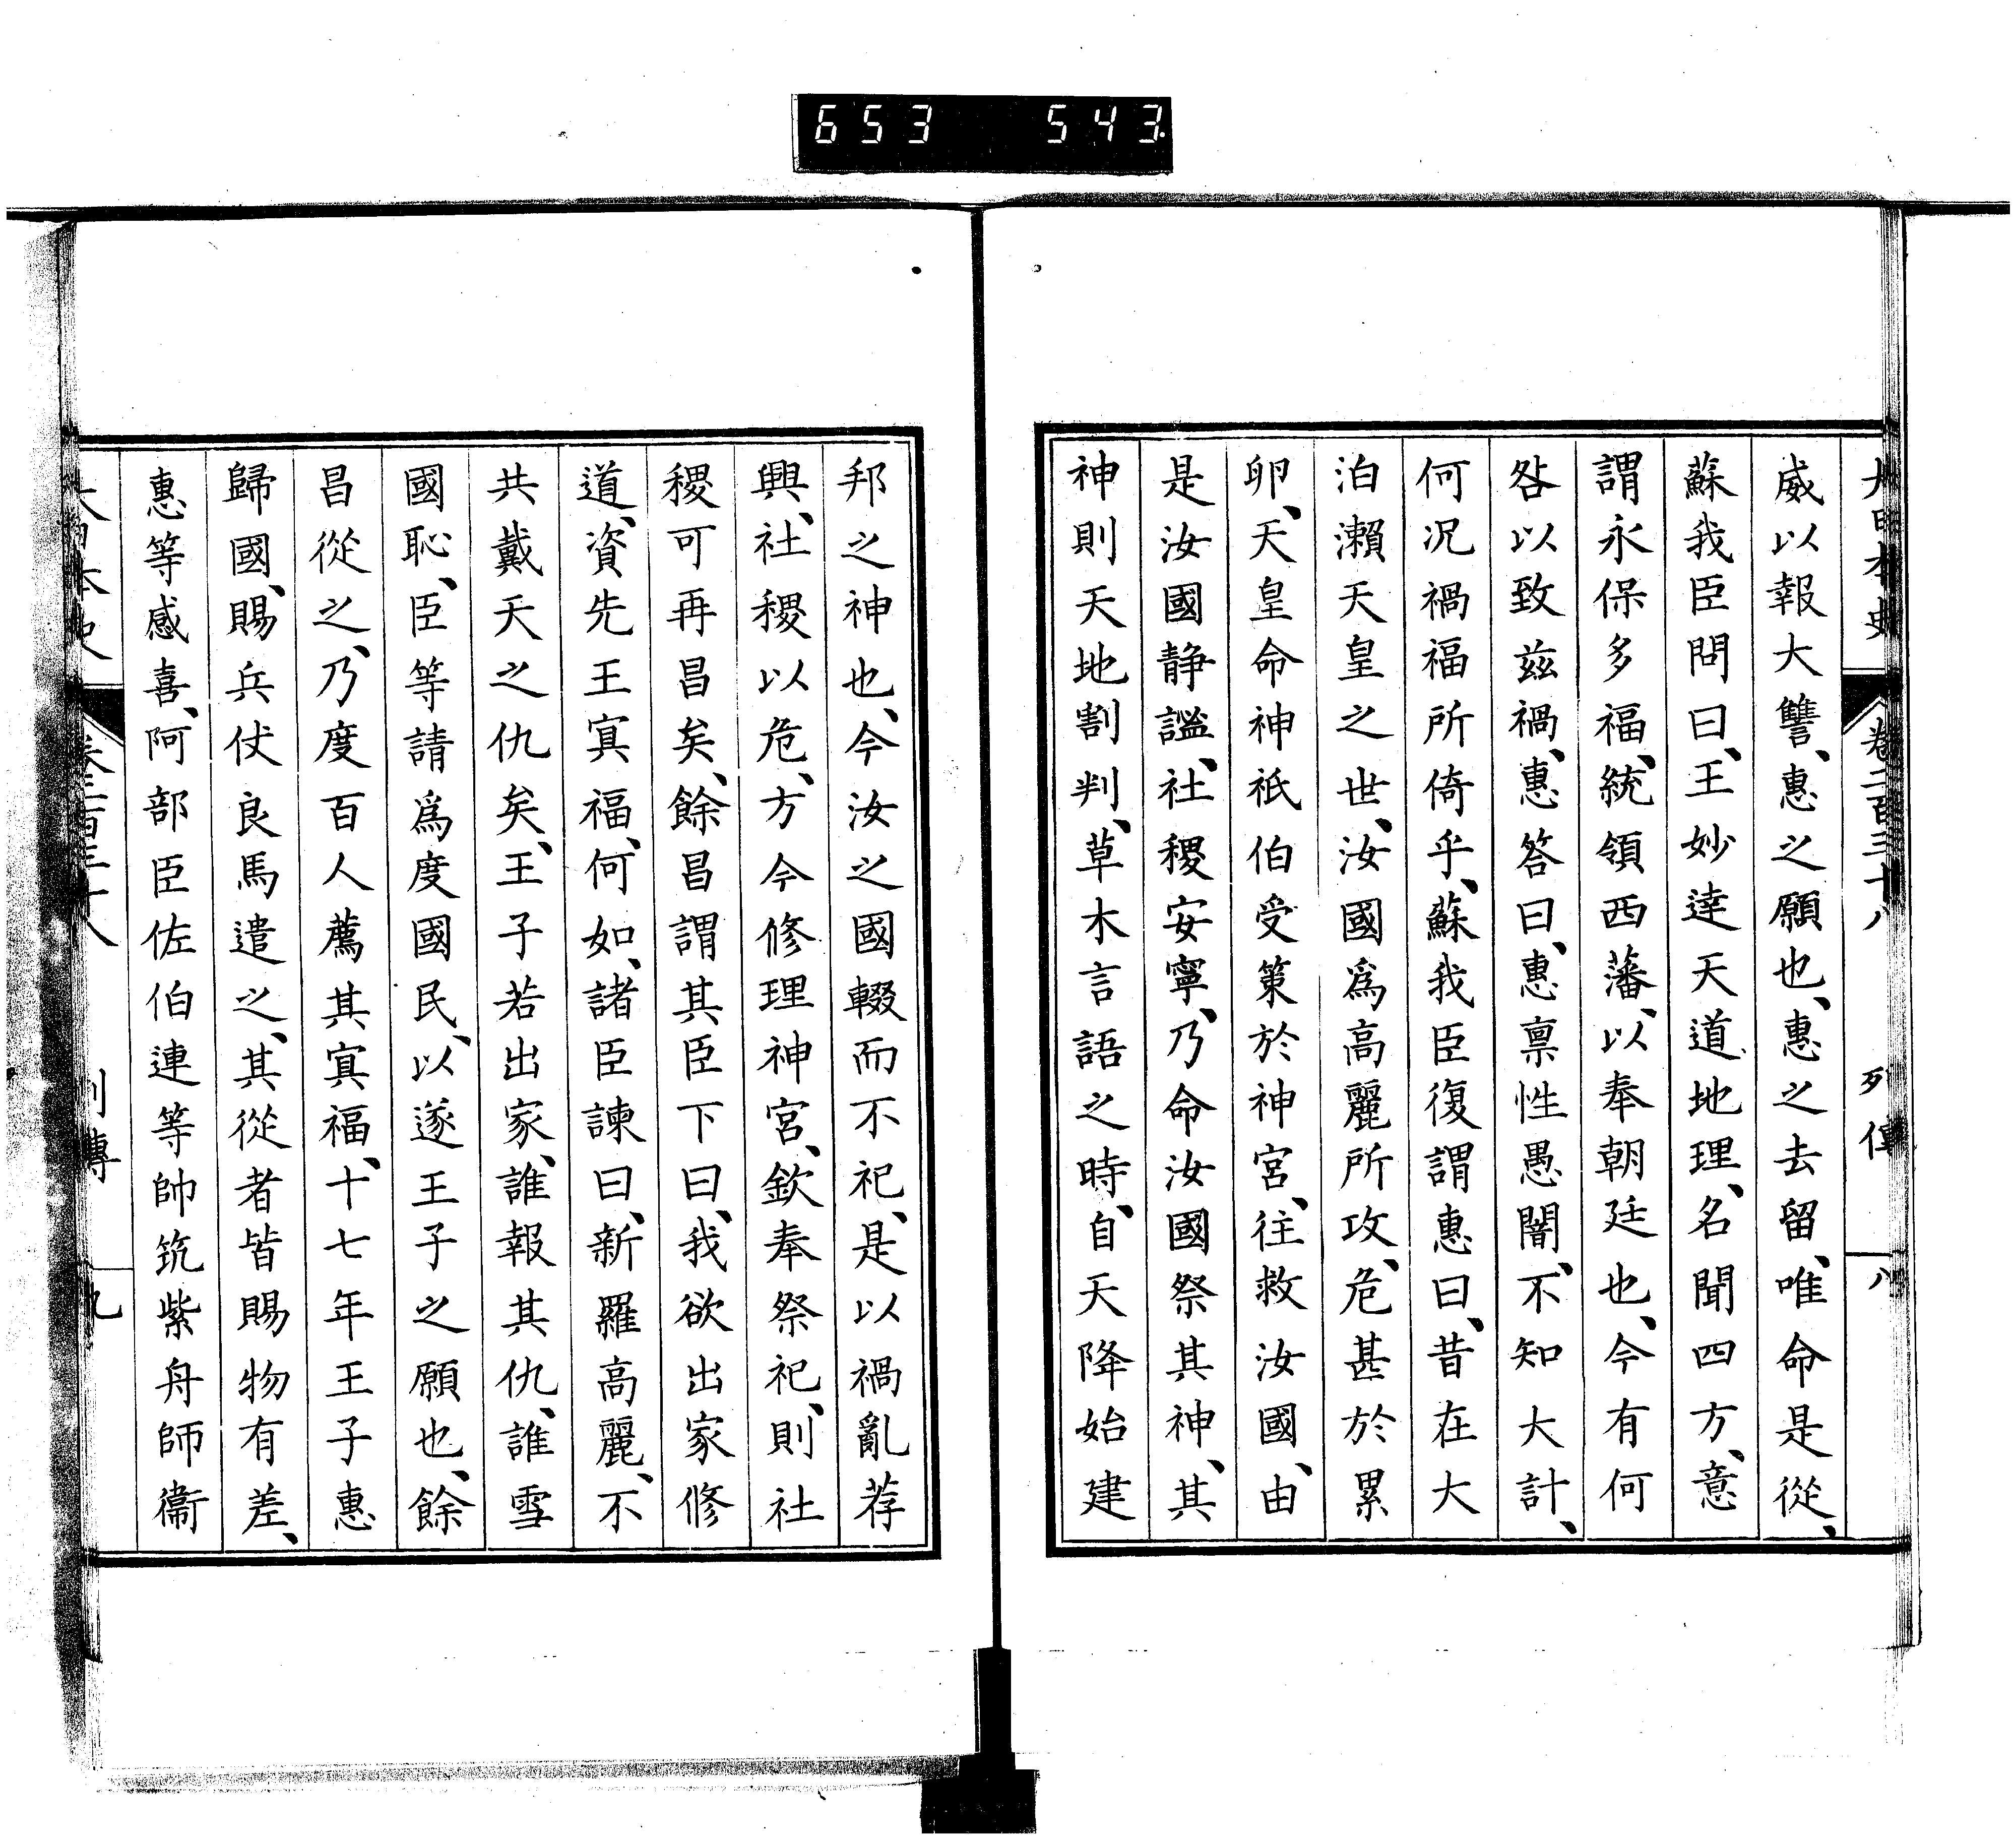 653 543
大日本史 卷二百三十八 列傳 八
威以報大讐、惠之願也、惠之去留、唯命是從、
蘇我臣問曰、王妙達天道地理、名聞四方、意
謂永保多福、統領西藩、以奉朝廷也、今有何
咎以致玆禍、惠答曰、惠禀性愚闇、不知大計、
何況禍福所倚乎、蘇我臣復謂惠曰、昔在大
泊瀨天皇之世、汝國爲高麗所攻、危甚於累
卵、天皇命神祇伯受策於神宮、往救汝國、由
是汝國静謐、社稷安寧、乃命汝國祭其神、其
神則天地割判、草木言語之時、自天降始建
邦之神也、今汝之國輟而不祀、是以禍亂荐
興、社稷以危、方今修理神宮、欽奉祭祀、則社
稷可再昌矣、餘昌謂其臣下曰、我欲出家修
道、資先王冥福、何如、諸臣諫曰、新羅高麗、不
共戴天之仇矣、王子若出家、誰報其仇、誰雪
國恥、臣等請爲度國民、以遂王子之願也、餘
昌從之、乃度百人薦其冥福、十七年王子惠
歸國、賜兵仗良馬遣之、其從者皆賜物有差、
惠等感喜、阿部臣佐伯連等帥筑紫舟師衞
大日本史 卷二百三十八 列傳 九